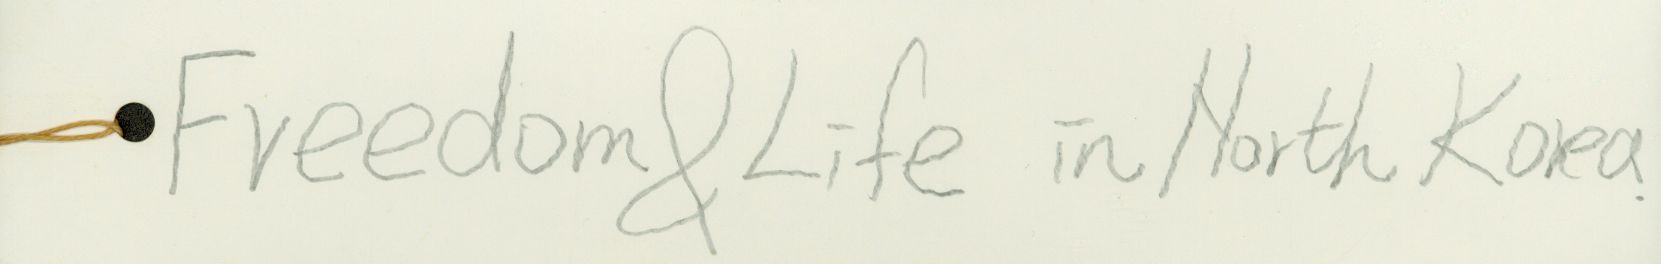 Freedom & Life in North Korea.